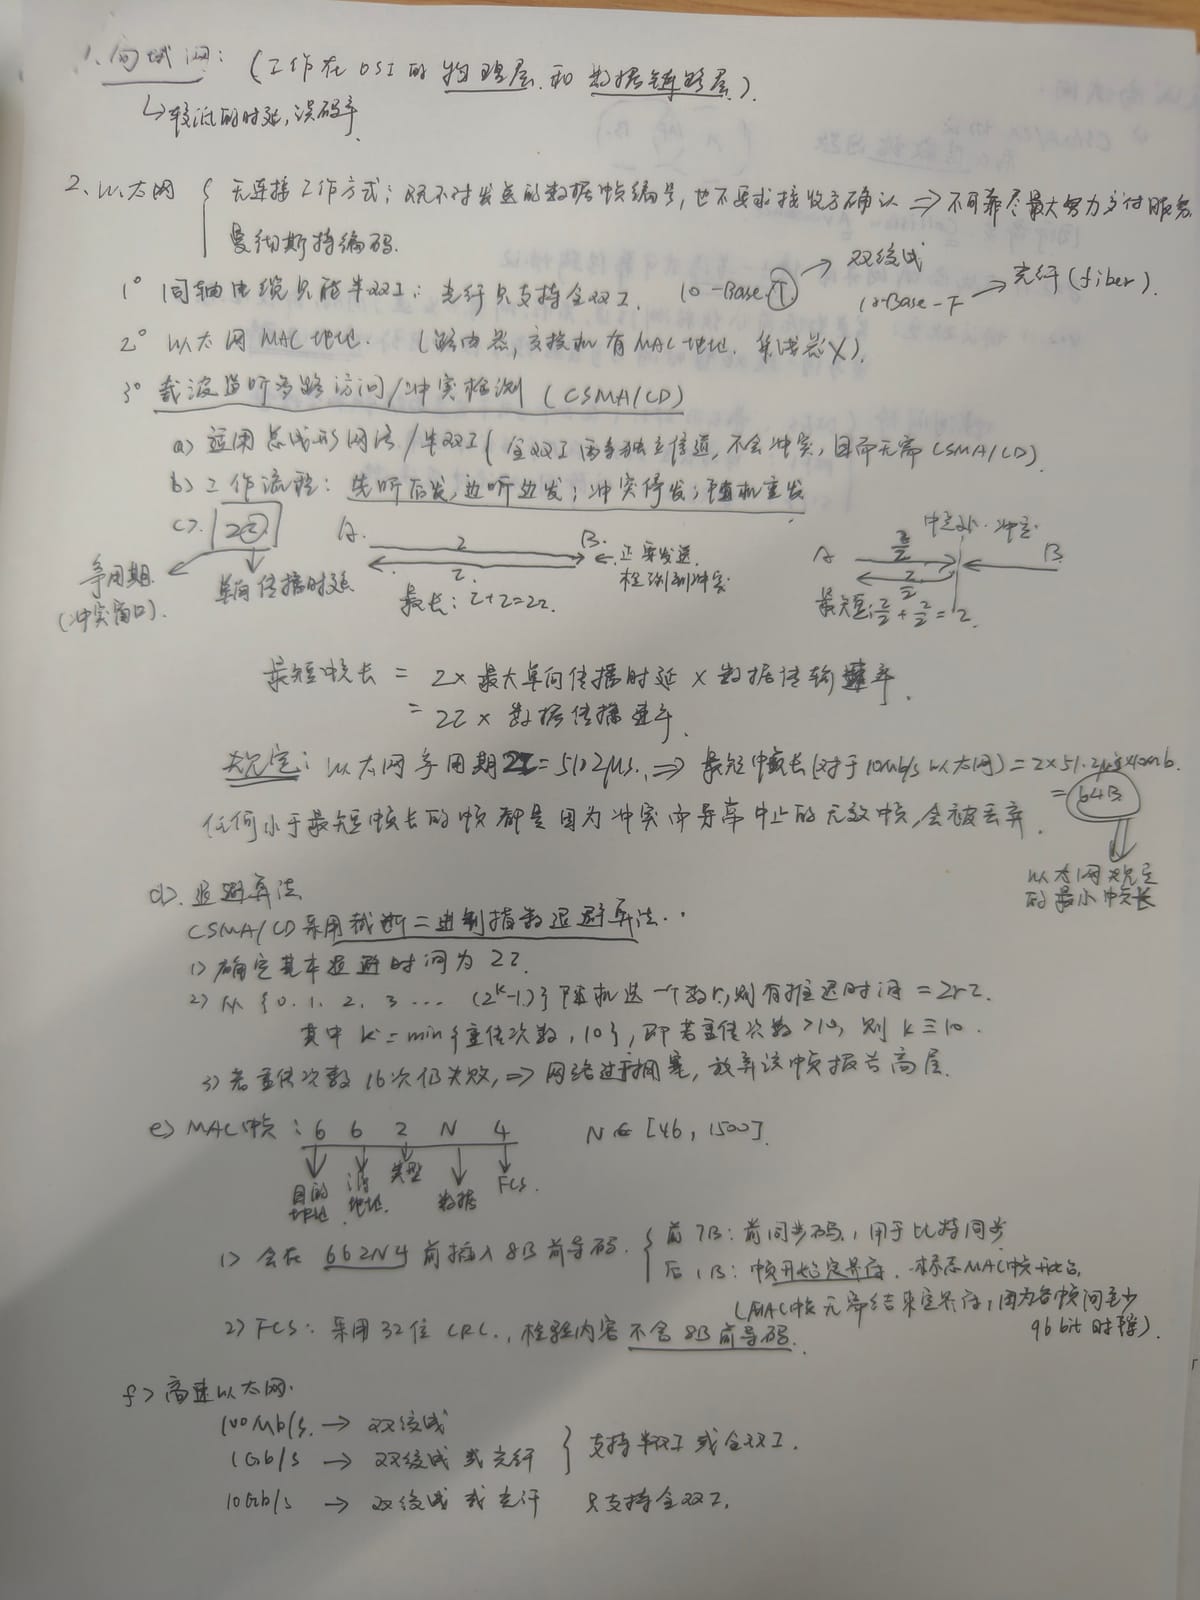 1. 局域网：(工作在OSI的物理层和数据链路层).
↳较低的时延,误码率.
2、以太网 { 无连接工作方式；既不对发送的数据帧编号,也不要求接收方确认 ⇒ 不可靠尽最大努力交付服务
曼彻斯特编码.
1° 同轴电缆只能半双工；光纤只支持全双工. 10-Base-T → 双绞线
10-Base-F → 光纤(fiber).
2° 以太网MAC地址. (路由器,交换机有MAC地址. 集线器X).
3° 载波监听多路访问/冲突检测 (CSMA/CD)
a) 适用总线形网络/半双工(全双工两条独立信道,不会冲突,因而无需CSMA/CD).
b) 工作流程：先听后发,边听边发；冲突停发；随机重发
c). 2τ A. τ B. ←正要发送.
检测到冲突.
争用期.
(冲突窗口).
单向传播时延
τ
最长：τ+τ=2τ.
A τ/2 冲突. B
τ/2
最短:τ/2+τ/2=τ.
最短帧长 = 2×最大单向传播时延×数据传输速率.
= 2τ×数据传播速率.
规定：以太网争用期2τ=51.2μs. ⇒ 最短帧长(对于10Mb/s以太网)=2×51.2μs×10Mb.
= 64B
任何小于最短帧长的帧都是因为冲突而异常中止的无效帧,会被丢弃.
以太网规定
的最小帧长
d). 退避算法
CSMA/CD采用截断二进制指数退避算法.
1) 确定基本退避时间为2τ.
2) 从{0.1.2.3... (2^k-1)}随机选一个数r,则有推迟时间=2rτ.
其中 k=min{重传次数,10},即若重传次数>10,则k≡10.
3) 若重传次数16次仍失败,⇒网络过于拥塞,放弃该帧报告高层.
e) MAC帧：6 6 2 N 4 N∈[46,1500].
目的
地址. 源
地址. 类型 数据 FCS.
1) 会在 662N4 前插入8B前导码. { 前7B：前同步码,用于比特同步
后1B：帧开始定界符.标志MAC帧开始.
(MAC帧无需结束定界符,因为各帧间至少
96bit时隙).
2) FCS：采用32位CRC.,检验内容不含8B前导码.
f) 高速以太网.
100Mb/s. → 双绞线
1Gb/s → 双绞线或光纤 } 支持半双工或全双工.
10Gb/s → 双绞线或光纤 只支持全双工.